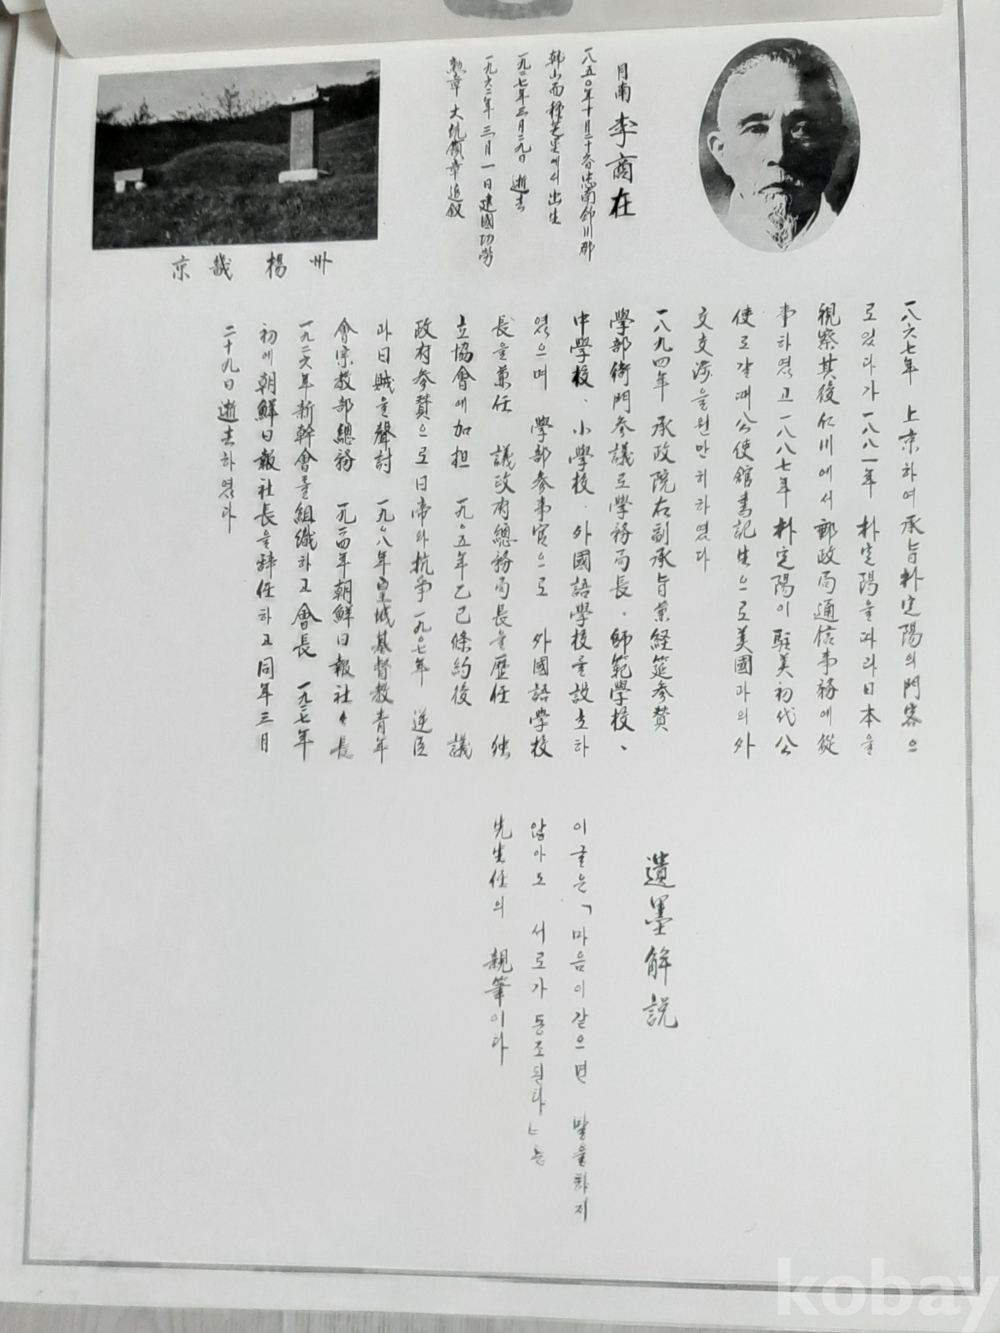 月南 李商在
一八五○年十月二十六日忠南舒川郡
韓山面種芝里에서 出生
一九二七年三月二九日 逝去
一九六二年 三月 一日 建國功勞
勲章 大統領章追敍
京畿 楊州
一八六七年 上京하여 承旨朴定陽의 門客으
로있다가 一八八一年 朴定陽을따라日本을
視察其後仁川에서 郵政局通信事務에從
事하였고 一八八七年 朴定陽이 駐美初代公
使로갈때公使館書記生으로美國과의外
交交渉을원만히하였다
一八九四年 承政院右副承旨兼経筵参賛
學部衙門参議로學務局長、師範學校、
中學校、小學校、外國語學校를設立하
였으며 學部参事官으로 外國語學校
長을兼任 議政府總務局長을歷任 独
立協會에加担 一九○五年乙巳條約後 議
政府参賛으로日帝와抗争一九○七年 逆臣
과日賊을聲討 一九○八年皇城基督教青年
會宗教部總務 一九二四年朝鮮日報社々長
一九二六年新幹會를組織하고會長 一九二七年
初에朝鮮日報社長을辞任하고同年三月
二十九日逝去하였다
遺墨解説
이글은「마음이같으면 말을하지
않아도 서로가 동조된다」는
先生任의 親筆이다
kobay